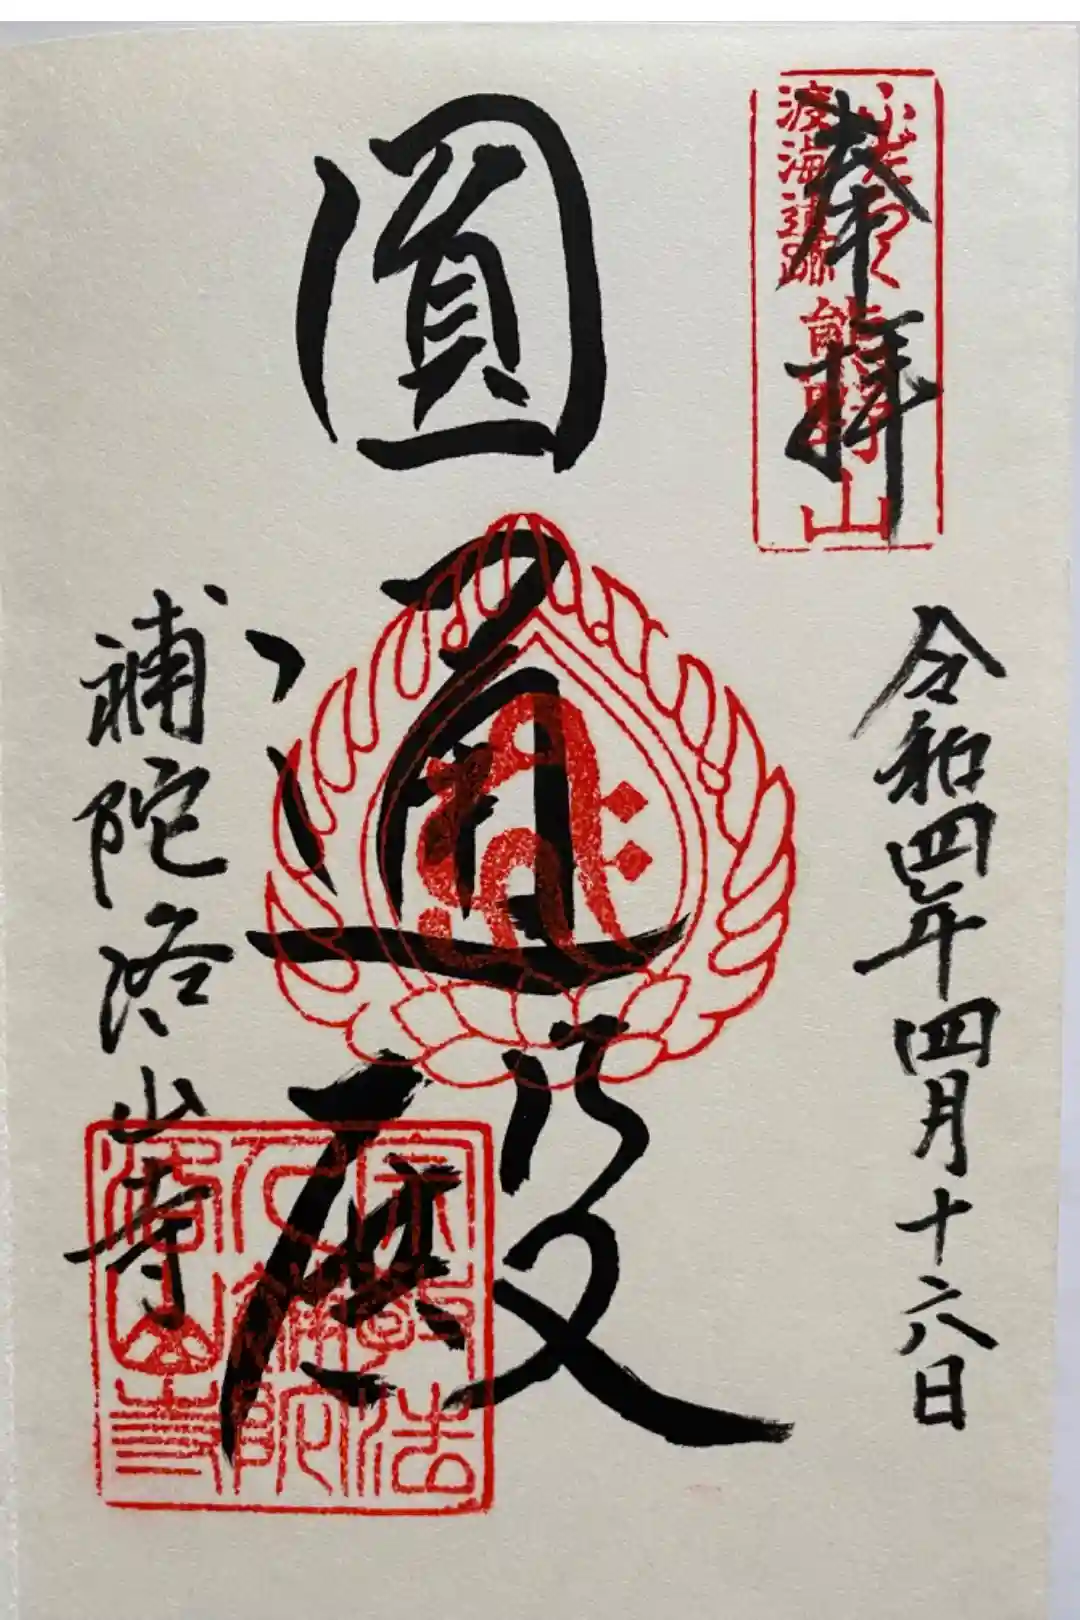 奉拝
渡海遺跡
熊野山
令和四年四月十六日
圓通殿
補陀洛山寺